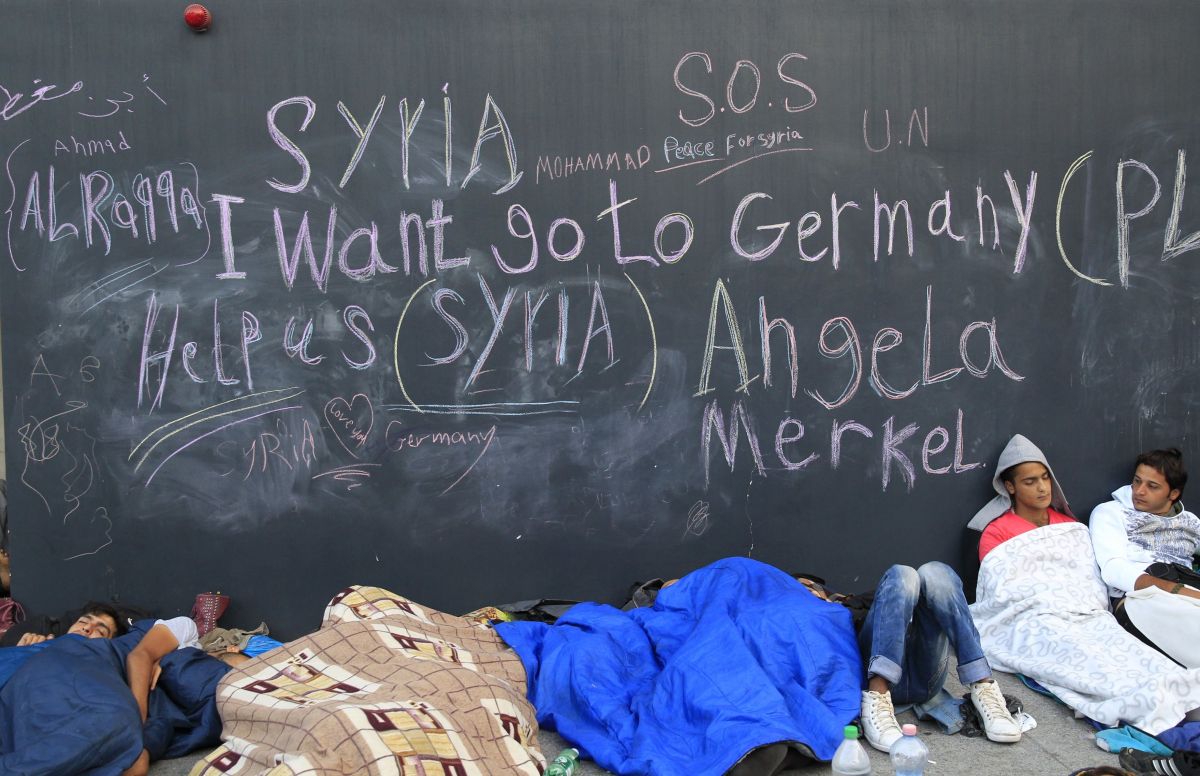 S.O.S
أين
Ahmad
ALRaqqa
SYRIA
MOHAMMAD
Peace For syria
U.N
I Want go to Germany (PL
Help us (SYRIA) Angela
Merkel
A
SYRIA Love you Germany